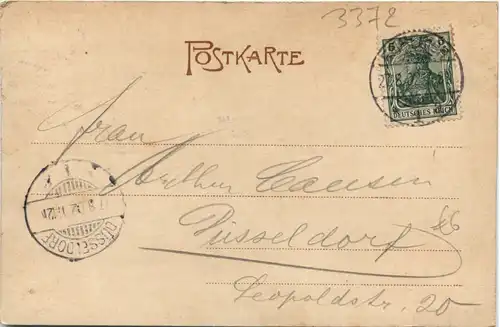 3372
POSTKARTE
5
DEUTSCHES REICH
Frau
Arthur Clausen
Düsseldorf
Leopoldstr. 20
DÜSSELDORF